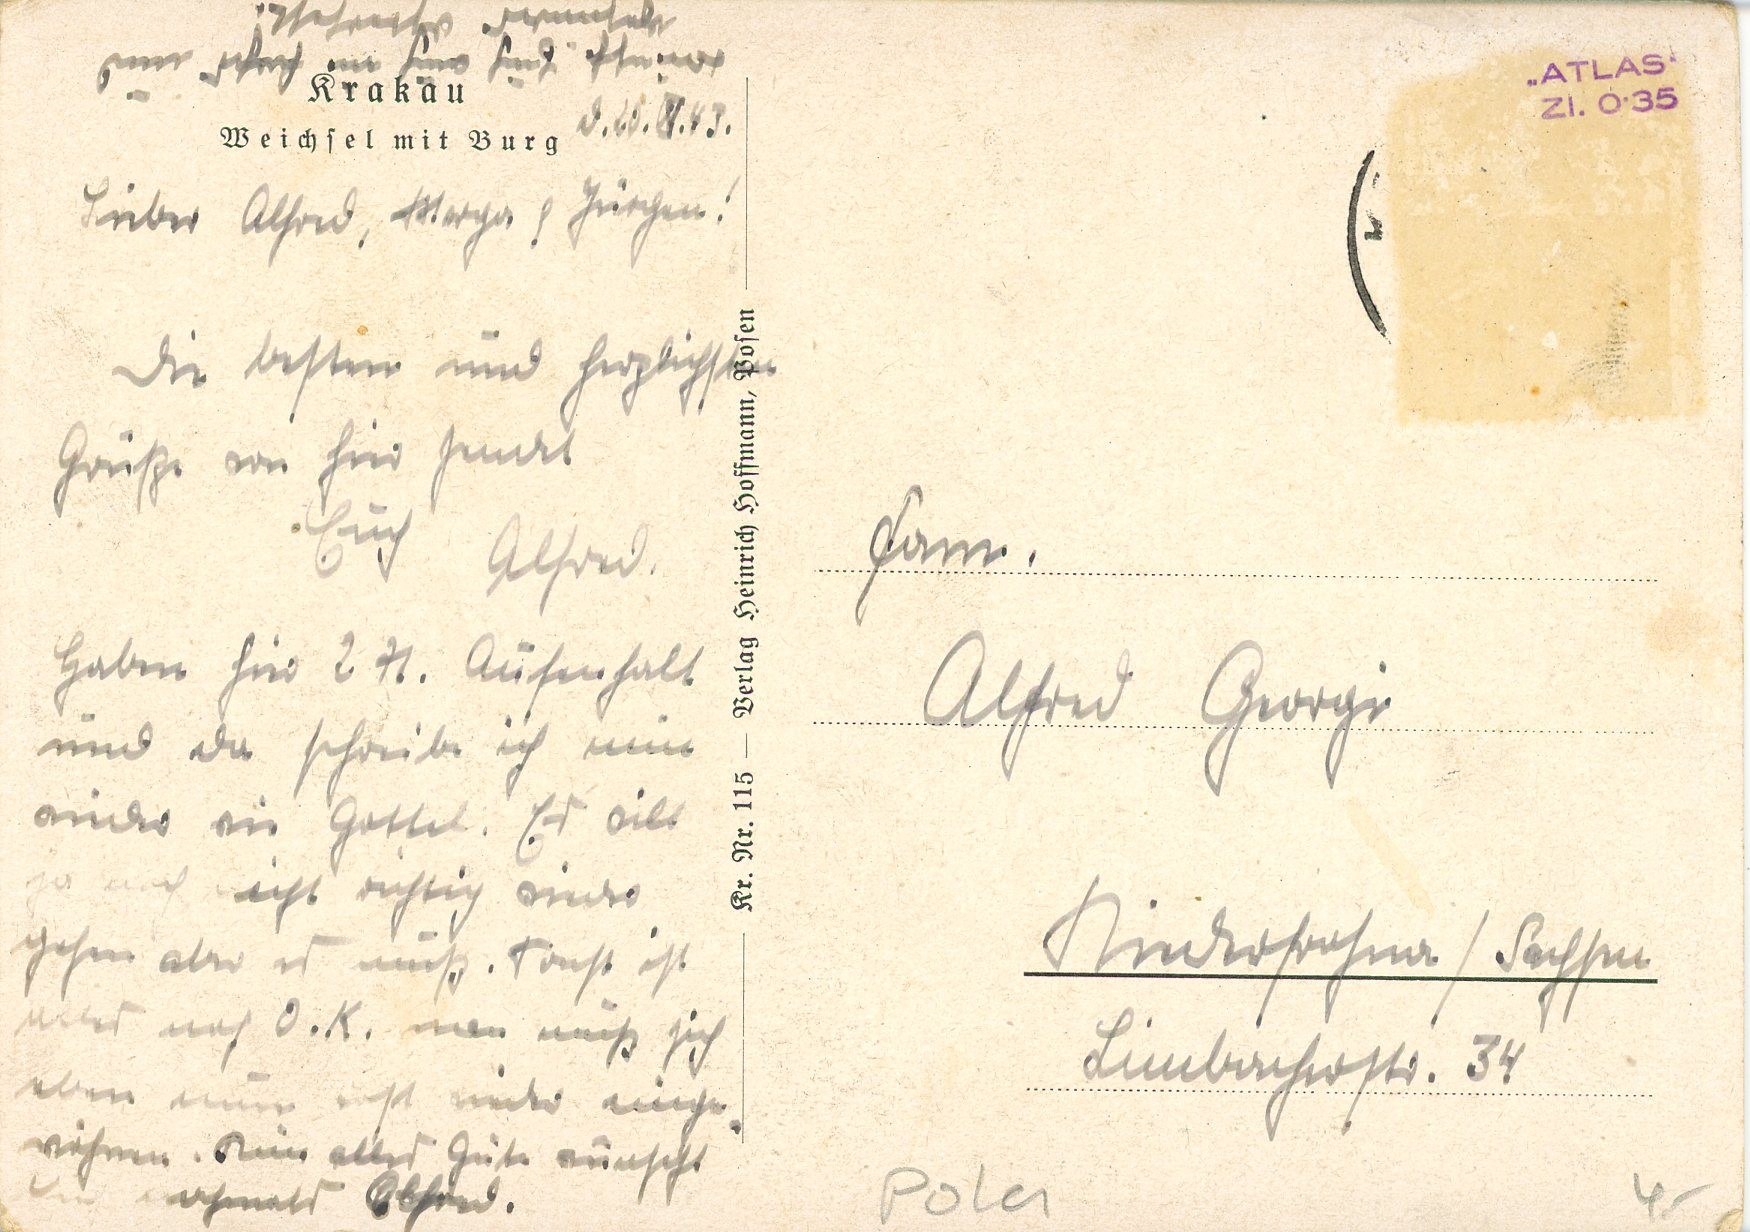 Krakau
Weichsel mit Burg
d. 20. V. 43.
Lieber Alfred, Marga & Jürgen!
Die besten und herzlichsten
Grüße von hier sendet
Euch Alfred.
Haben hier 2 St. Aufenhalt
und da schreibe ich nun
wieder ein Gartel. Es will
ja noch nicht richtig wieder
gehen aber es muß. Sonst ist
alles noch O.K. man muß sich
eben nun erst wieder einge-
wöhnen. Nun alles Gute wünscht
nochmals Alfred.
Kr. Nr. 115 — Verlag Heinrich Hoffmann, Posen
„ATLAS“
Zl. 0·35
Fam.
Alfred Georgi
Niederfrohna / Sachsen
Limbacherstr. 34
Polen
4,-